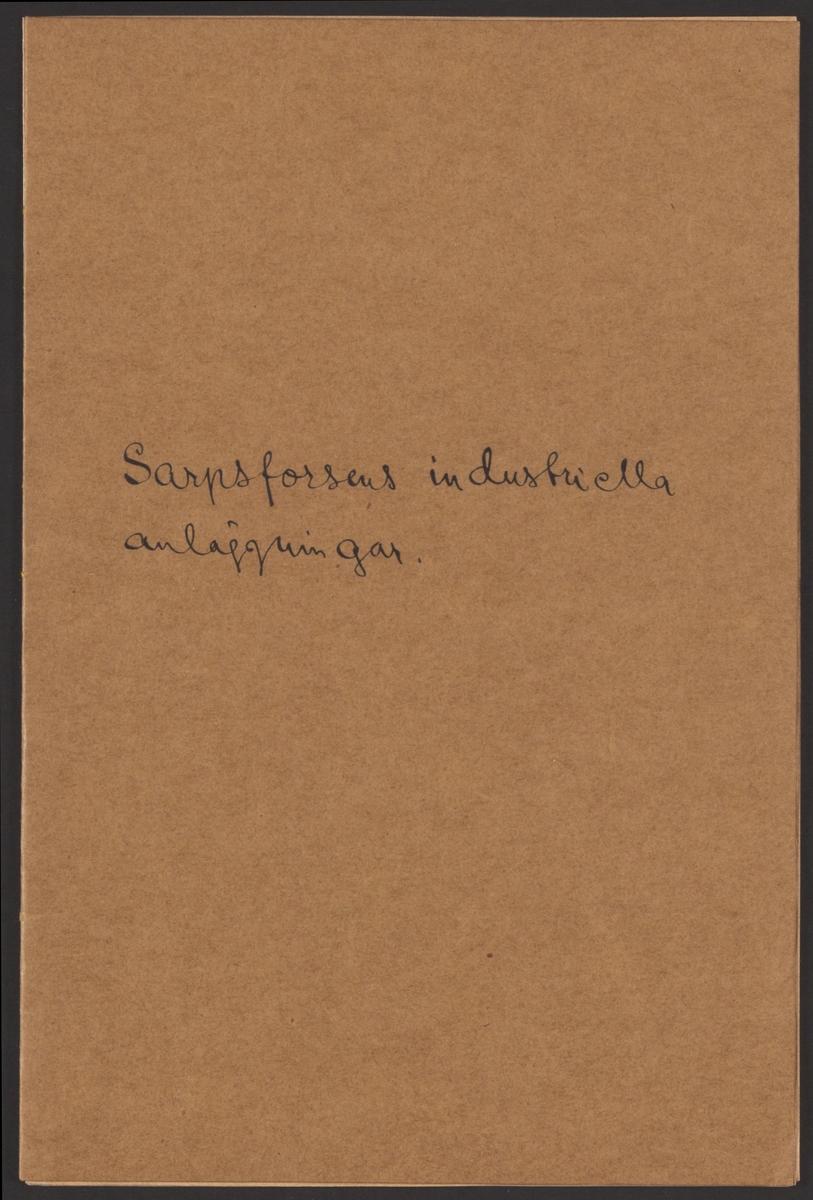 Sarpsfossens industriella
anläggningar.